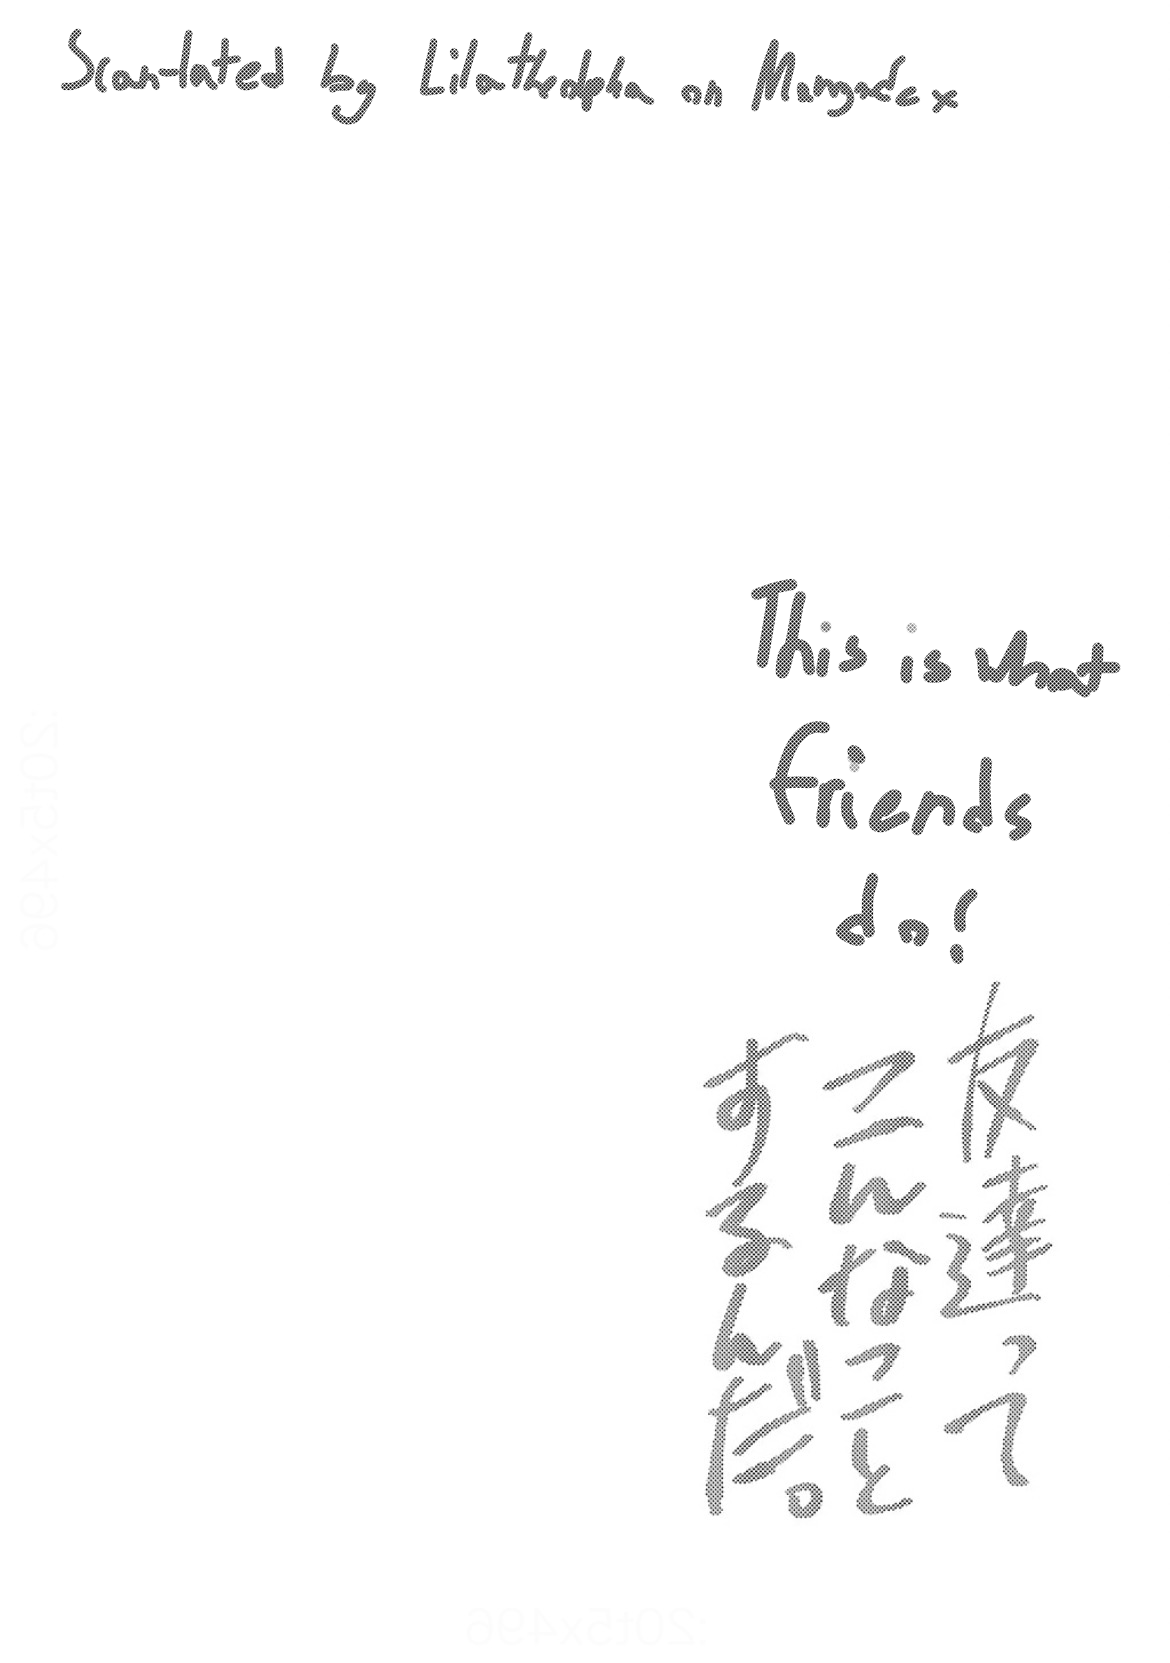 Scanlated by Lilathealpha on Mangadex
This is what
friends
do!
友達って
こんなこと
するんだ。